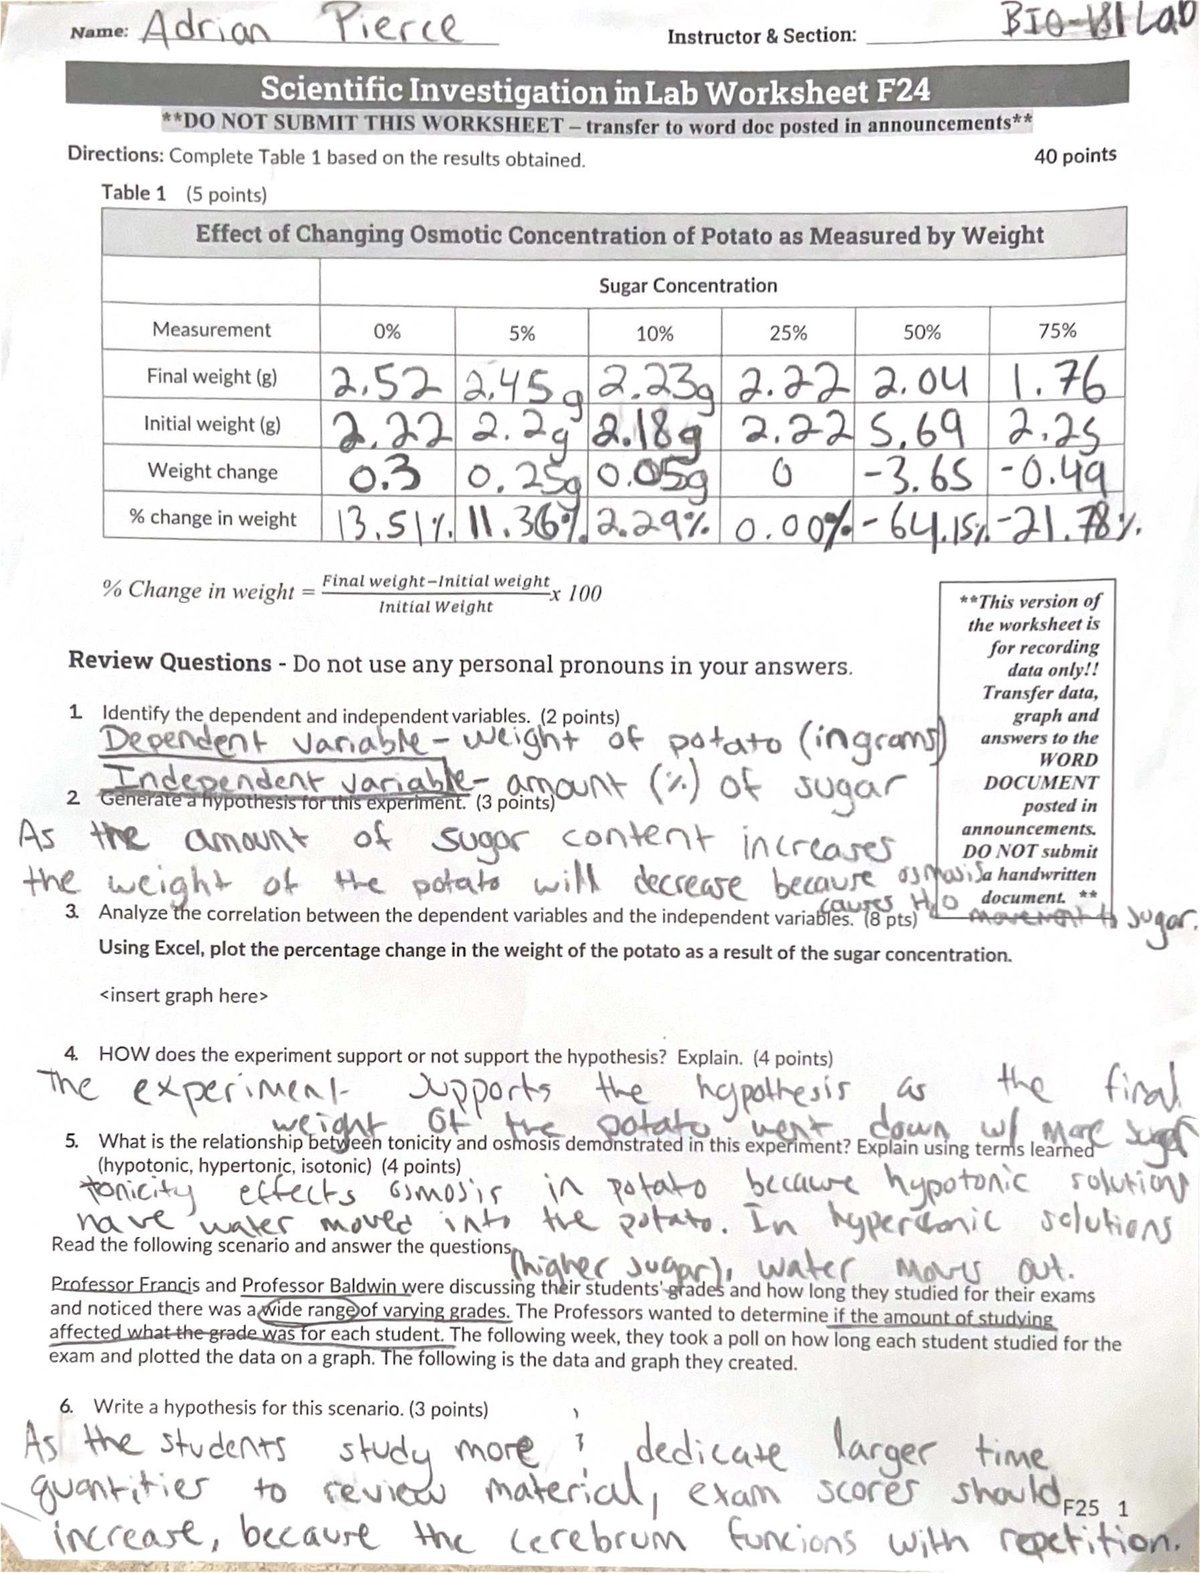 Name: Adrian Pierce Instructor & Section: BIO-181 Lab
Scientific Investigation in Lab Worksheet F24
**DO NOT SUBMIT THIS WORKSHEET – transfer to word doc posted in announcements**
Directions: Complete Table 1 based on the results obtained. 40 points
Table 1 (5 points)
Effect of Changing Osmotic Concentration of Potato as Measured by Weight
Sugar Concentration
Measurement 0% 5% 10% 25% 50% 75%
Final weight (g) 2.52 2.45g 2.23g 2.22 2.04 1.76
Initial weight (g) 2.22 2.2g 2.18g 2.22 5.69 2.25
Weight change 0.3 0.25g 0.05g 0 -3.65 -0.49
% change in weight 13.51% 11.36% 2.29% 0.00% -64.15% -21.78%
% Change in weight = Final weight–Initial weight x 100
Initial Weight
**This version of
the worksheet is
for recording
data only!!
Transfer data,
graph and
answers to the
WORD
DOCUMENT
posted in
announcements.
DO NOT submit
a handwritten
document. **
Review Questions - Do not use any personal pronouns in your answers.
1. Identify the dependent and independent variables. (2 points)
Dependent variable - weight of potato (in grams)
Independent variable - amount (%) of sugar
2. Generate a hypothesis for this experiment. (3 points)
As the amount of sugar content increases
the weight of the potato will decrease because osmosis
causes H2O movement to sugar.
3. Analyze the correlation between the dependent variables and the independent variables. (8 pts)
Using Excel, plot the percentage change in the weight of the potato as a result of the sugar concentration.
<insert graph here>
4. HOW does the experiment support or not support the hypothesis? Explain. (4 points)
The experiment supports the hypothesis as the final
weight of the potato went down w/ more sugar
5. What is the relationship between tonicity and osmosis demonstrated in this experiment? Explain using terms learned
(hypotonic, hypertonic, isotonic) (4 points)
tonicity effects osmosis in potato because hypotonic solutions
have water moved into the potato. In hypertonic solutions
(higher sugar), water moves out.
Read the following scenario and answer the questions.
Professor Francis and Professor Baldwin were discussing their students' grades and how long they studied for their exams
and noticed there was a wide range of varying grades. The Professors wanted to determine if the amount of studying
affected what the grade was for each student. The following week, they took a poll on how long each student studied for the
exam and plotted the data on a graph. The following is the data and graph they created.
6. Write a hypothesis for this scenario. (3 points)
As the students study more & dedicate larger time
quantities to review material, exam scores should
increase, because the cerebrum funcions with repetition.
F25 1